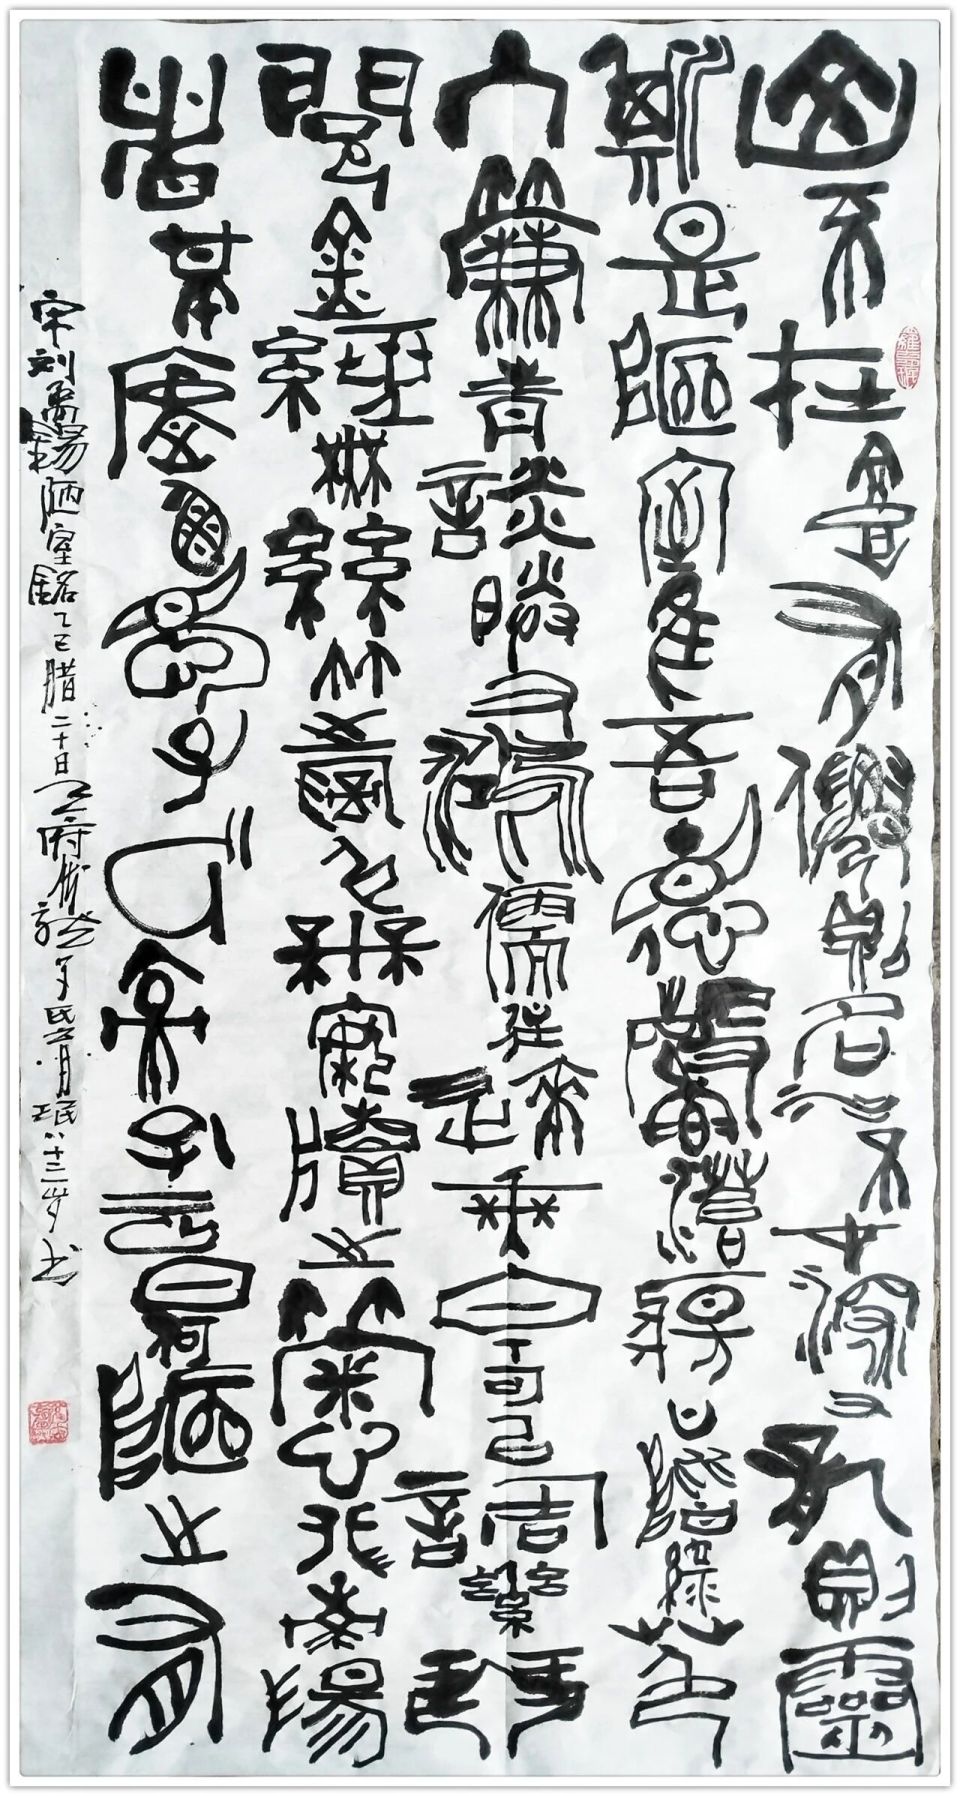 山不在高有僊則名水不在深又龍則靈
斯是陋室惟吾德馨苔痕上階綠草色
入簾青談笑又鴻儒往來無白丁可以調素琴
閱金經無絲竹之亂耳無案牘之勞形南陽
諸葛廬西蜀子云亭孔子云何陋之有
宋刘禹錫陋室銘乙巳腊二十日天府 八十三岁书